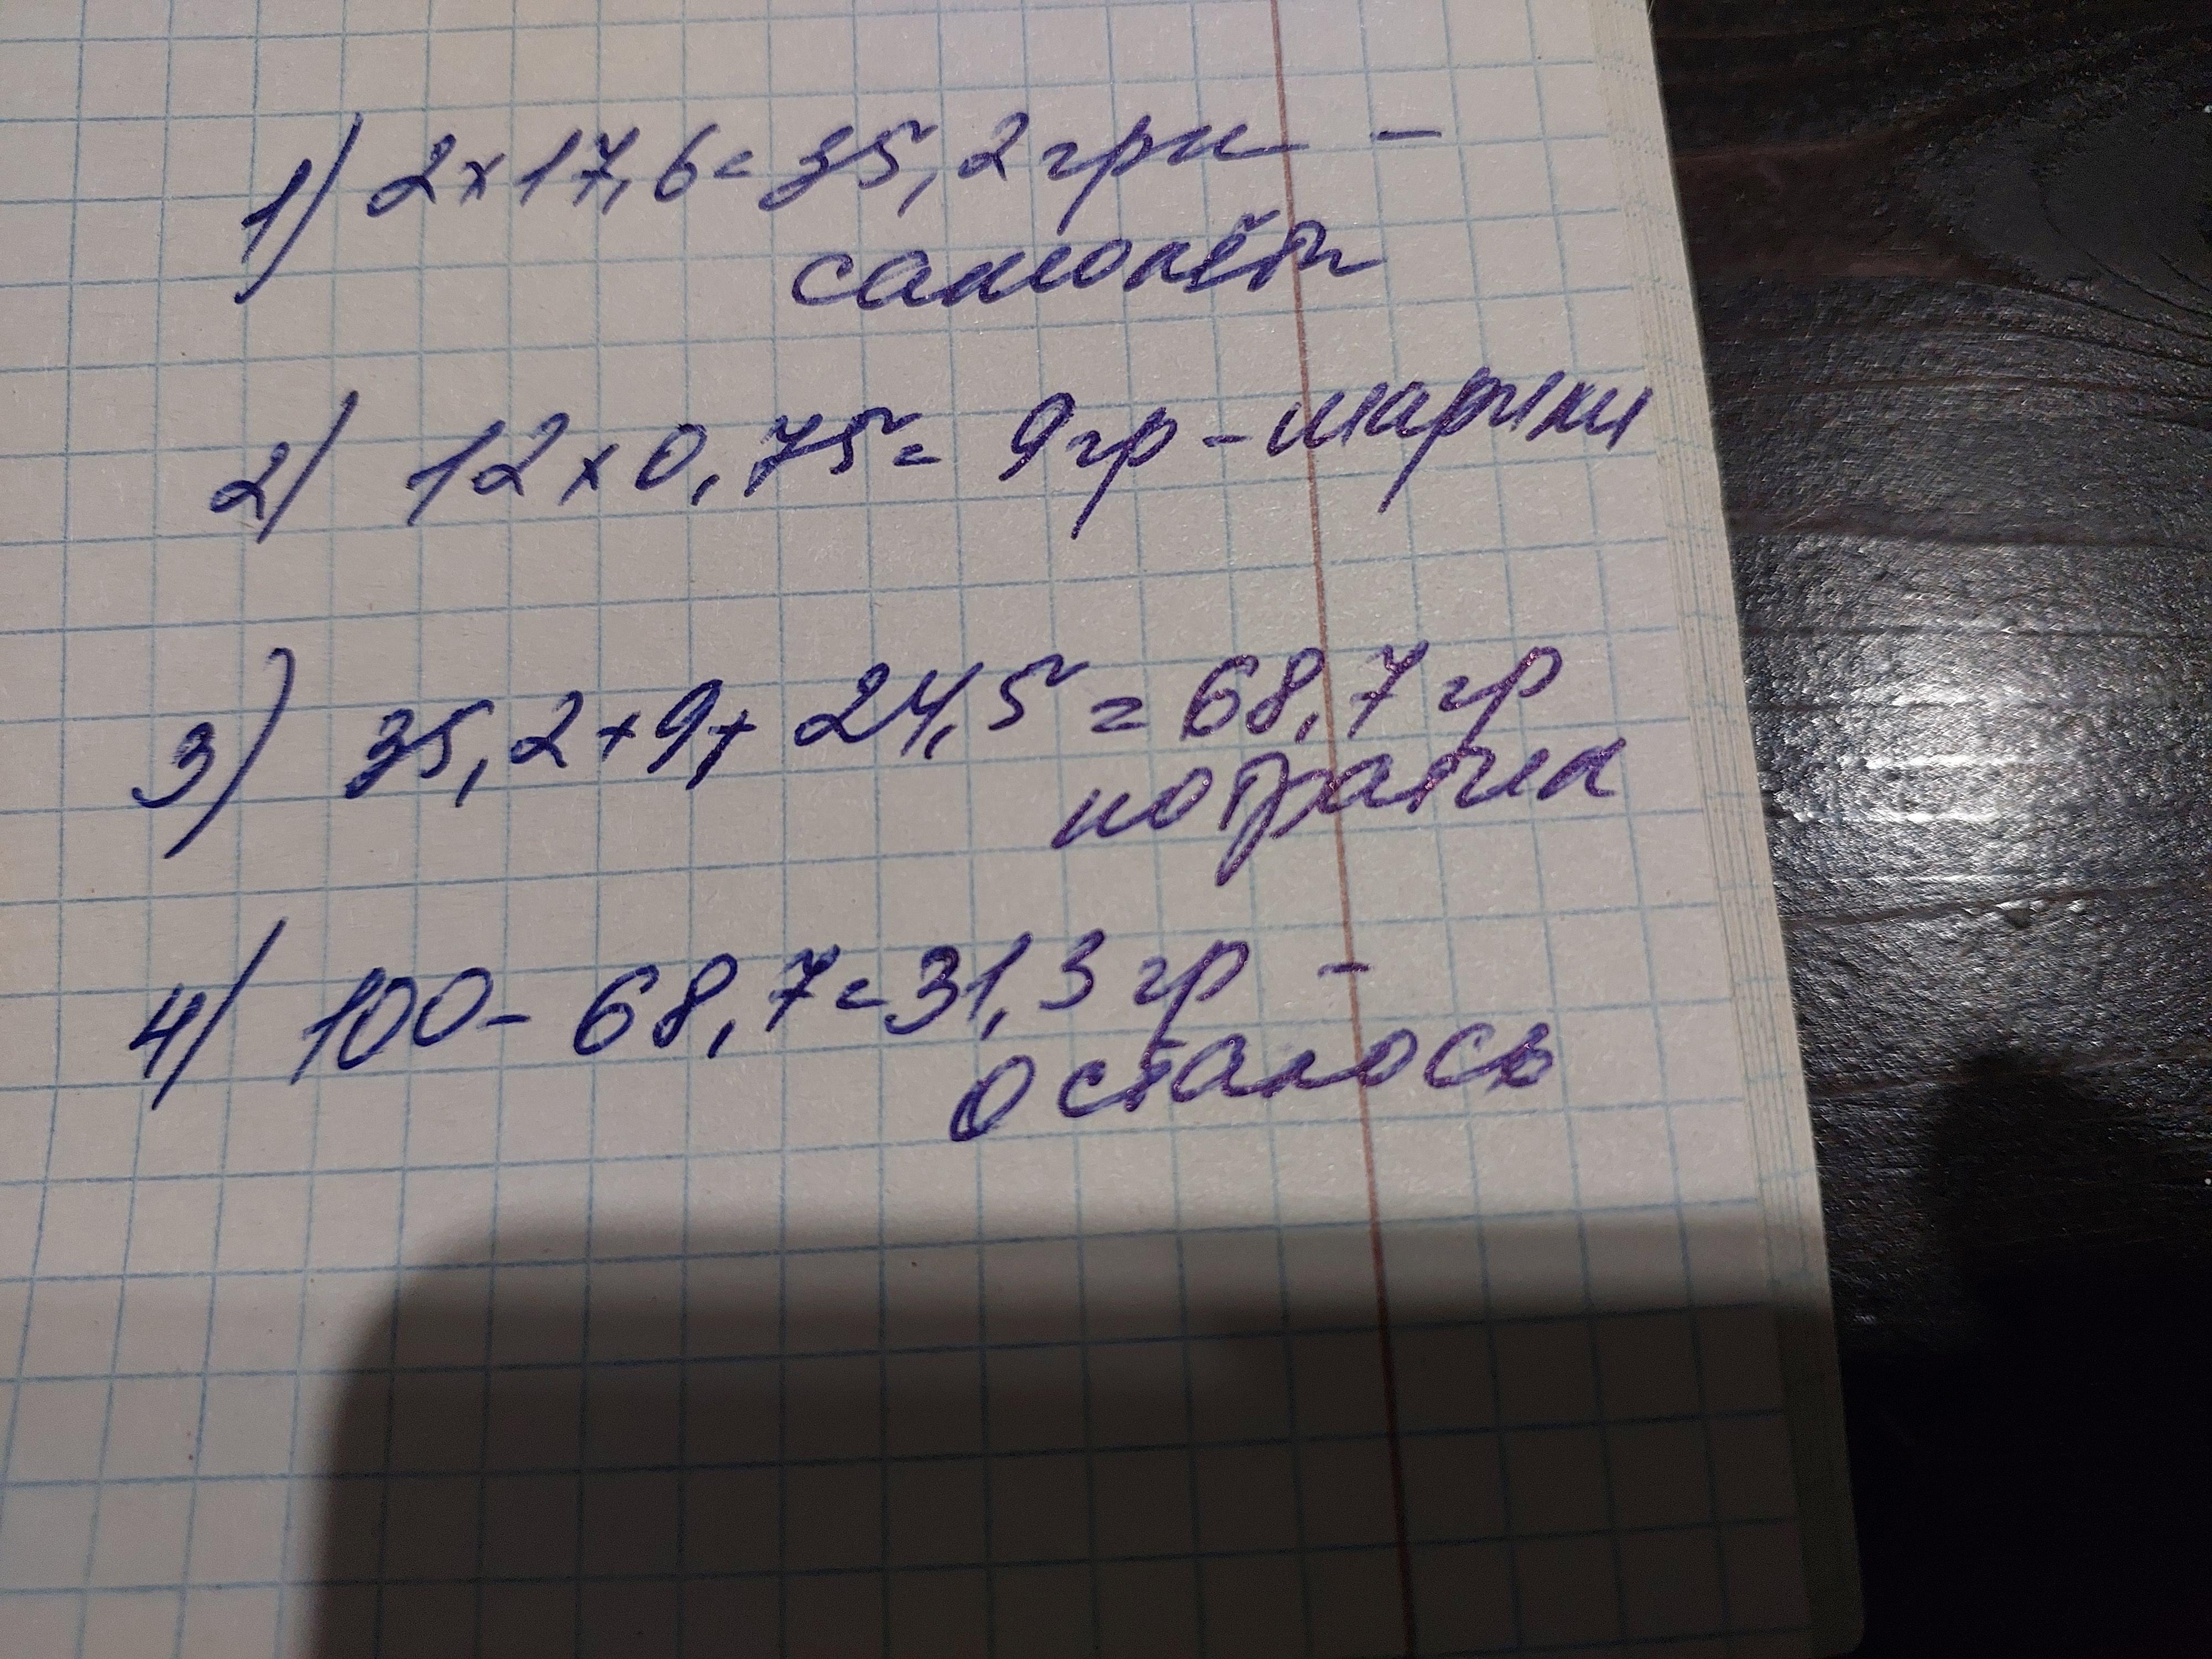 1) 2x17,6=35,2 грн -
самолёт
2) 12x0,75=9гр-шарики
3) 35,2+9+24,5=68,7 гр
потратил
4) 100-68,7=31,3 гр -
осталось